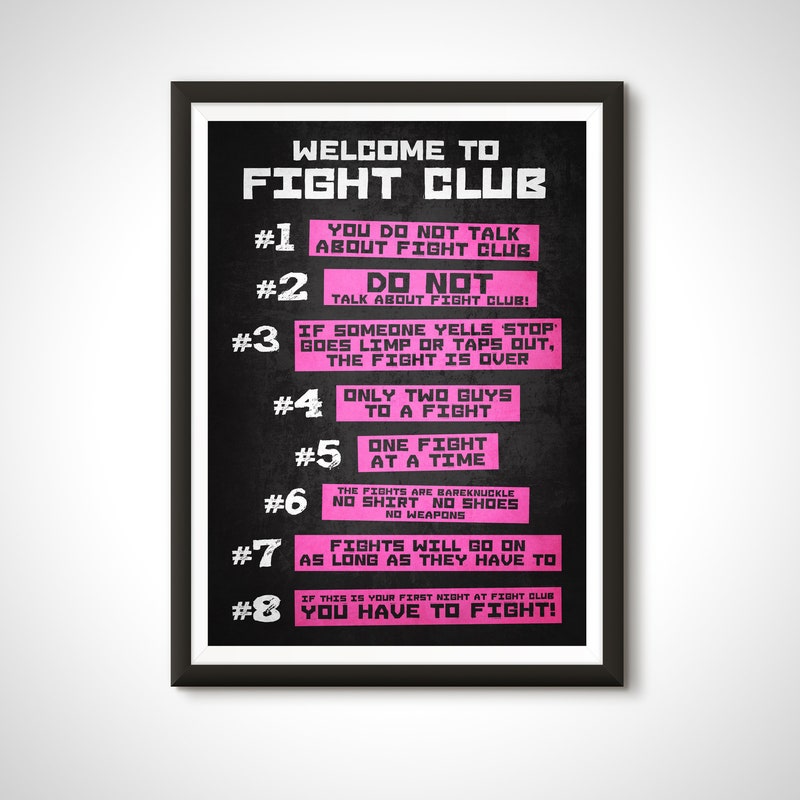 WELCOME TO
FIGHT CLUB
#1 YOU DO NOT TALK
ABOUT FIGHT CLUB
#2 DO NOT
TALK ABOUT FIGHT CLUB!
#3 IF SOMEONE YELLS 'STOP'
GOES LIMP OR TAPS OUT,
THE FIGHT IS OVER
#4 ONLY TWO GUYS
TO A FIGHT
#5 ONE FIGHT
AT A TIME
#6 THE FIGHTS ARE BAREKNUCKLE
NO SHIRT NO SHOES
NO WEAPONS
#7 FIGHTS WILL GO ON
AS LONG AS THEY HAVE TO
#8 IF THIS IS YOUR FIRST NIGHT AT FIGHT CLUB
YOU HAVE TO FIGHT!